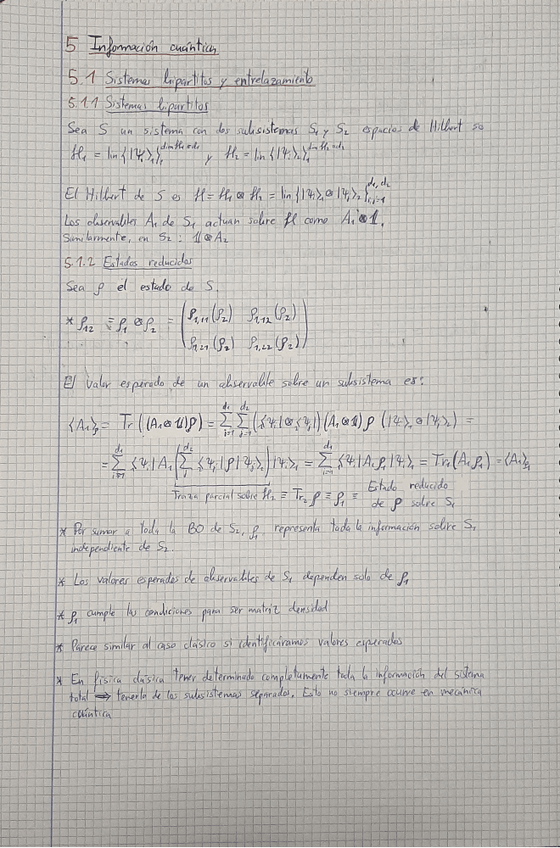 5 Información cuántica
5.1 Sistemas bipartitos y entrelazamiento
5.1.1 Sistemas bipartitos
Sea S un sistema con dos subsistemas S₁ y S₂ espacios de Hilbert
H₁ = lin{|Ψᵢ⟩₁}ᵢ^{dim H₁=d₁} y H₂ = lin{|Ψⱼ⟩₂}^{dim H₂=d₂}
El Hilbert de S es H = H₁ ⊗ H₂ = lin{|Ψᵢ⟩₁ ⊗ |Ψⱼ⟩₂}_{i,j=1}^{d₁,d₂}
Los observables A₁ de S₁ actúan sobre H como A₁ ⊗ 𝟙.
Similarmente, en S₂: 𝟙 ⊗ A₂
5.1.2 Estados reducidos
Sea ρ el estado de S.
* ρ₁₂ ≡ ρ₁ ⊗ ρ₂ = ( ρ₁,₁₁(ρ₂) ρ₁,₁₂(ρ₂)
ρ₁,₂₁(ρ₂) ρ₁,₂₂(ρ₂) )
El valor esperado de un observable sobre un subsistema es:
⟨A₁⟩ρ = Tr((A₁⊗𝟙)ρ) = Σ_{i=1}^{d₁} Σ_{j=1}^{d₂} (₁⟨Ψᵢ| ⊗ ₂⟨Ψⱼ|) (A₁⊗𝟙) ρ (|Ψᵢ⟩₁ ⊗ |Ψⱼ⟩₂) =
= Σ_{i=1}^{d₁} ₁⟨Ψᵢ| A₁ (Σ_{j}^{d₂} ₂⟨Ψⱼ| ρ |Ψⱼ⟩₂) |Ψᵢ⟩₁ = Σ_{i=1}^{d₁} ₁⟨Ψᵢ| A₁ρ₁ |Ψᵢ⟩₁ = Tr₁(A₁ρ₁) = ⟨A₁⟩ρ₁
Traza parcial sobre H₂ ≡ Tr₂ ρ ≡ ρ₁ ≡ Estado reducido
de ρ sobre S₁
* Por sumar a toda la BO de S₂, ρ₁ representa toda la información sobre S₁
independiente de S₂.
* Los valores esperados de observables de S₁ dependen solo de ρ₁
* ρ₁ cumple las condiciones para ser matriz densidad
* Parece similar al caso clásico si identificáramos valores esperados
* En física clásica tener determinado completamente toda la información del sistema
total ⟹ tenerla de los subsistemas separados. Esto no siempre ocurre en mecánica
cuántica